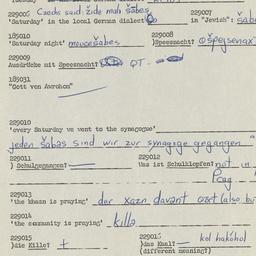 229006 Czechs said židé mali šábes 229007
'Saturday' in the local German dialect in "Jewish": šáb
185010 229008
'Saturday night' )Speesnacht?
229009
Ausdrücke mit Speesnacht? OT -
185031
"Gott von Awrohom"
229010
'every Saturday we went to the synagogue'
jeden šabas sind wir zur synagoge gegangen
229011 229012
) Schulgegangen? Was ist Schulklopfen? not in
Prag
229013
'the khazn is praying' der xazn davant oret (also bu
229014
'the community is praying' killa
229015 229016 kol hakóhol
)die Kille? + )das Kaal?
(different meaning?)